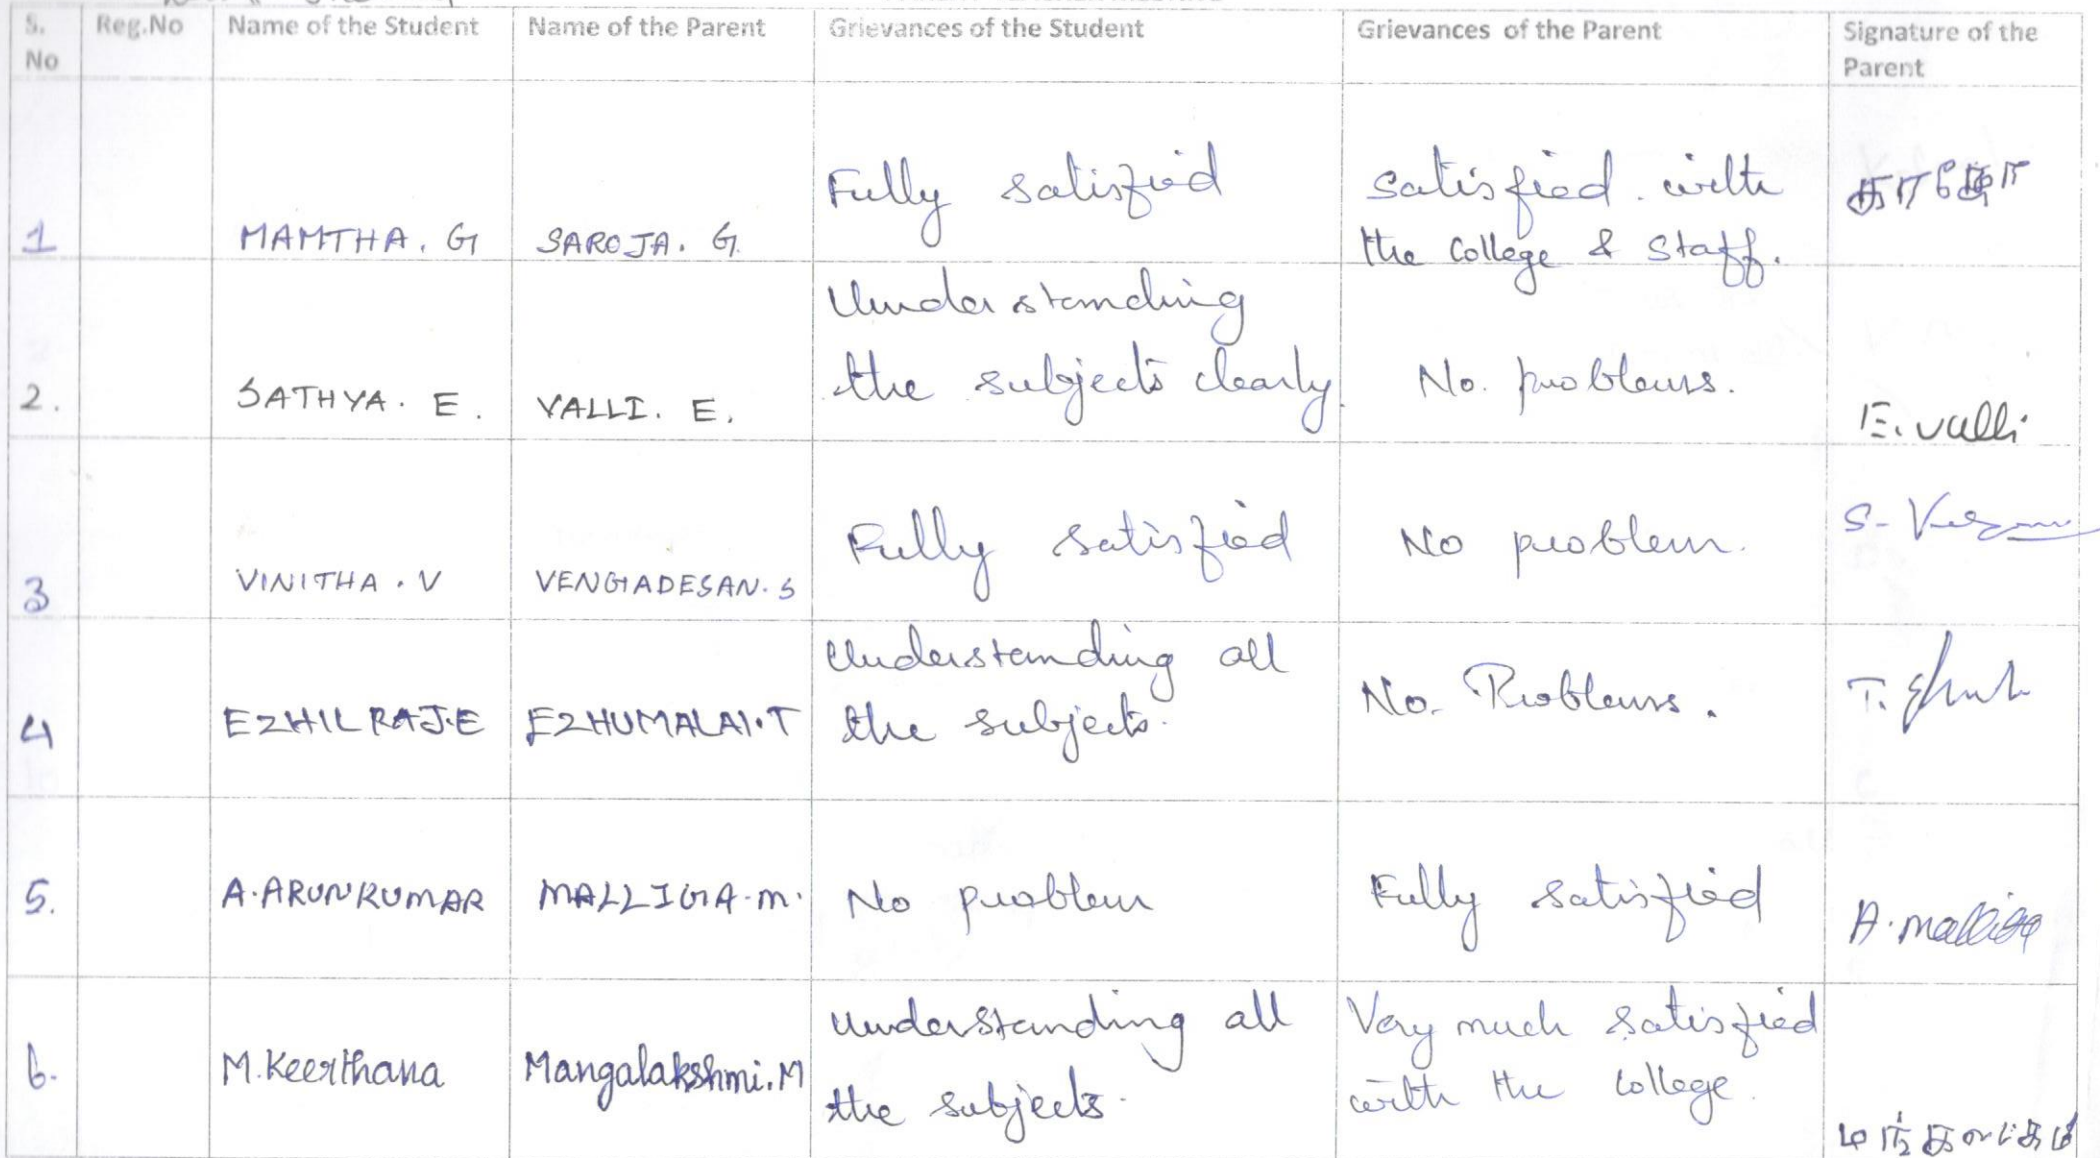 S. No Reg.No Name of the Student Name of the Parent Grievances of the Student Grievances of the Parent Signature of the Parent
1 MAMTHA. G SAROJA. G. Fully satisfied Satisfied. with
the College & Staff.
2. SATHYA. E. VALLI. E. Understanding
the subjects clearly. No. problems. E. Valli
3 VINITHA. V VENGADESAN. S Fully satisfied No problem. S-
4 EZHILRAJ.E EZHUMALAI.T Understanding all
the subjects. No. Problems. T.
5. A.ARUNKUMAR MALLIGA.M. No problem Fully satisfied A. malliga
6. M.Keerthana Mangalakshmi.M understanding all
the subjects. Very much satisfied
with the college.